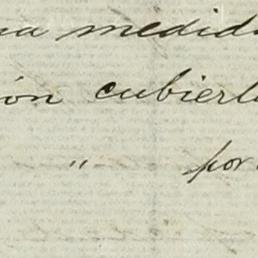 na medid
ión cubiert
" por